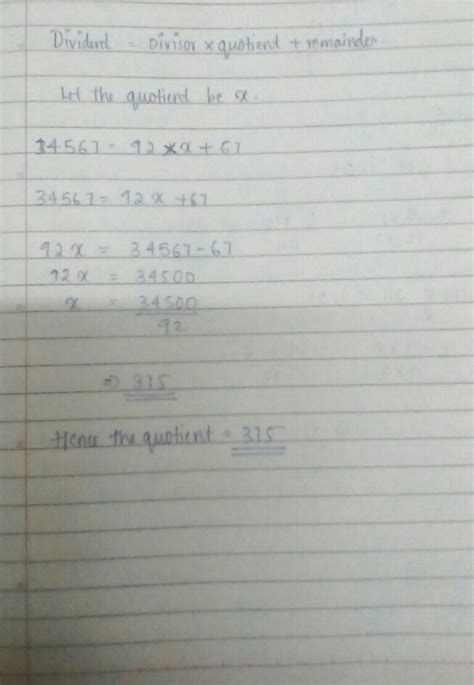 Dividend = Divisor × quotient + remainder.
Let the quotient be x.
34567 = 92 × x + 67
34567 = 92x + 67
92x = 34567 - 67
92x = 34500
x = 34500
92
⇒ 375
Hence the quotient = 375